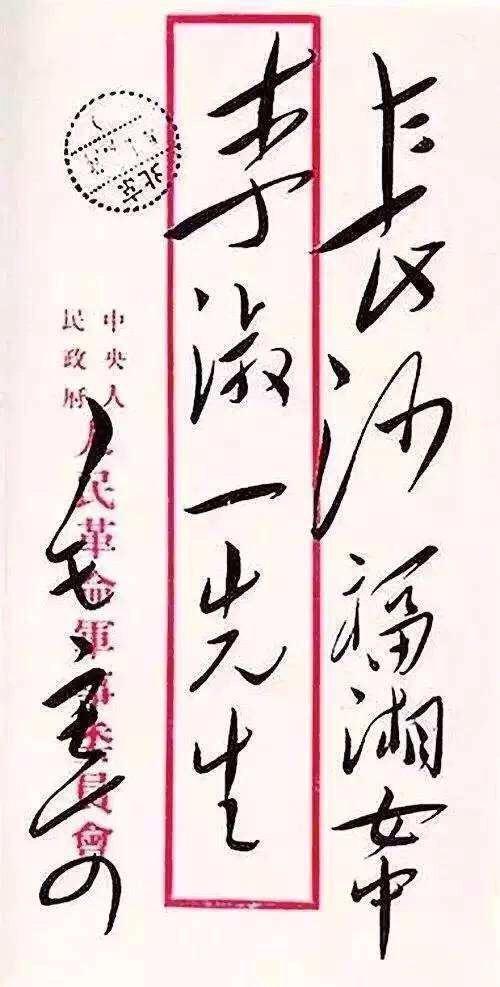 長沙福湘女中
李淑一先生
中央人
民政府
人民革命軍事委員會
北京